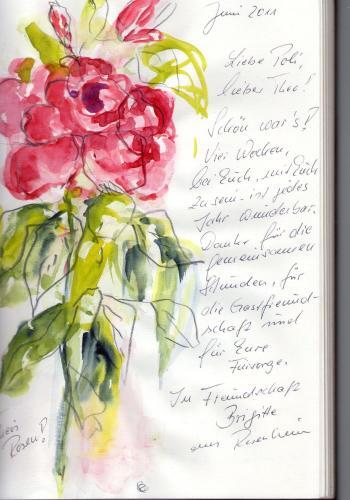 Juni 2011
Liebe Poli,
lieber Theo!
Schön war's!
Vier Wochen,
bei Euch, mit Euch
zu sein ist jedes
Jahr wunderbar.
Danke für die
gemeinsamen
Stunden, für
die Gastfreund-
schaft und
für Eure
Fürsorge.
In Freundschaft
Brigitte
aus Rosenheim
Rosen!